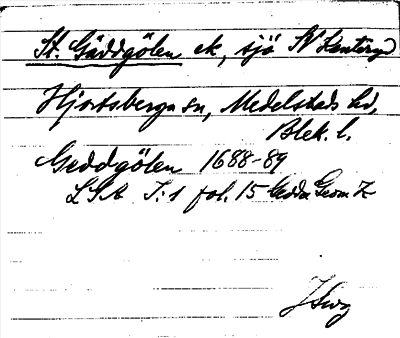 St. Gäddgölen ek, sjö SV Kanteryd
Hjortsberga sn, Medelstads hd,
Blek. l.
Geddgölen 1688-89
LSA I:1 fol. 15